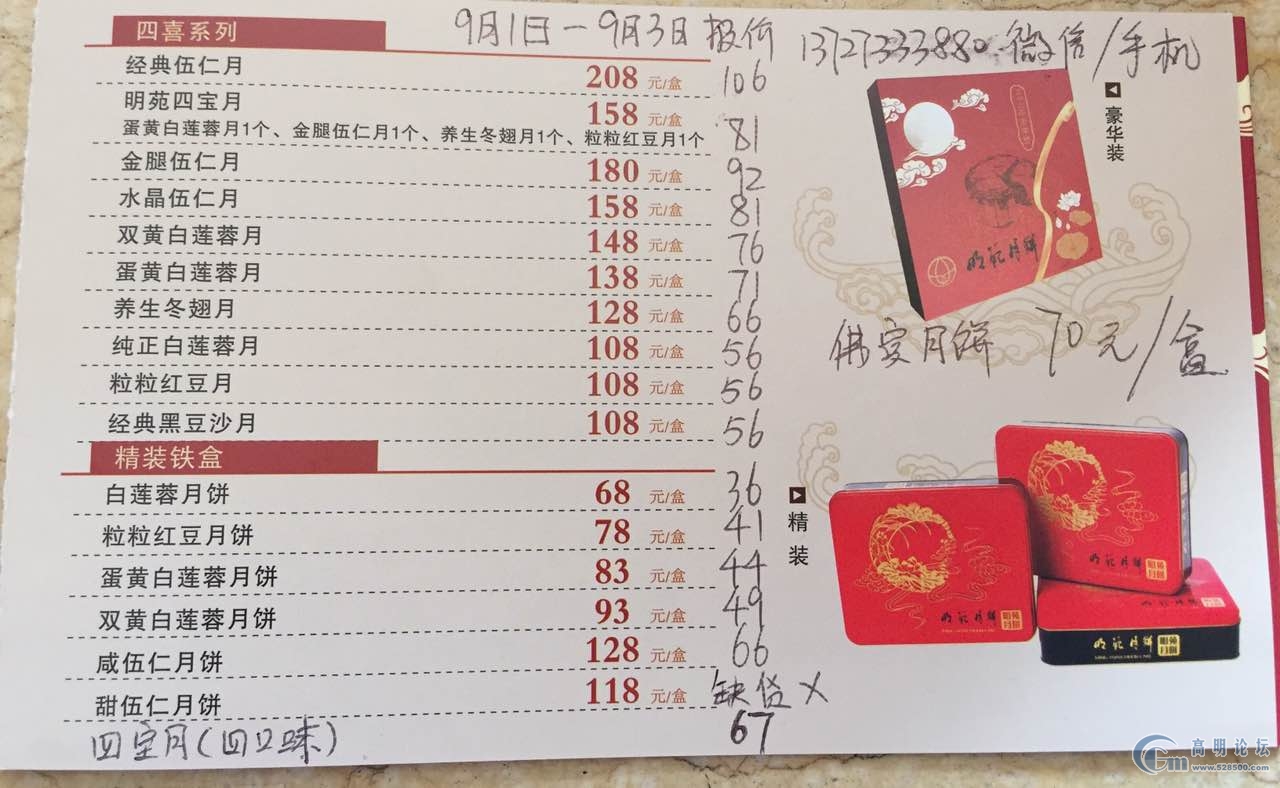 四喜系列
9月1日一9月3日报价
13727333880 微信/手机
经典伍仁月 208 元/盒 106
明苑四宝月 158 元/盒
蛋黄白莲蓉月1个、金腿伍仁月1个、养生冬翅月1个、粒粒红豆月1个 81
金腿伍仁月 180 元/盒 92
水晶伍仁月 158 元/盒 81
双黄白莲蓉月 148 元/盒 76
蛋黄白莲蓉月 138 元/盒 71
养生冬翅月 128 元/盒 66
纯正白莲蓉月 108 元/盒 56
粒粒红豆月 108 元/盒 56
经典黑豆沙月 108 元/盒 56
精装铁盒
白莲蓉月饼 68 元/盒 36
粒粒红豆月饼 78 元/盒 41
蛋黄白莲蓉月饼 83 元/盒 44
双黄白莲蓉月饼 93 元/盒 49
咸伍仁月饼 128 元/盒 66
甜伍仁月饼 118 元/盒 缺货 X
四宝月(四口味) 67
豪华装
明苑月饼
佛宝月饼 70元/盒
精装
明苑月饼
明苑月饼
明苑月饼
高明论坛
www.528500.com